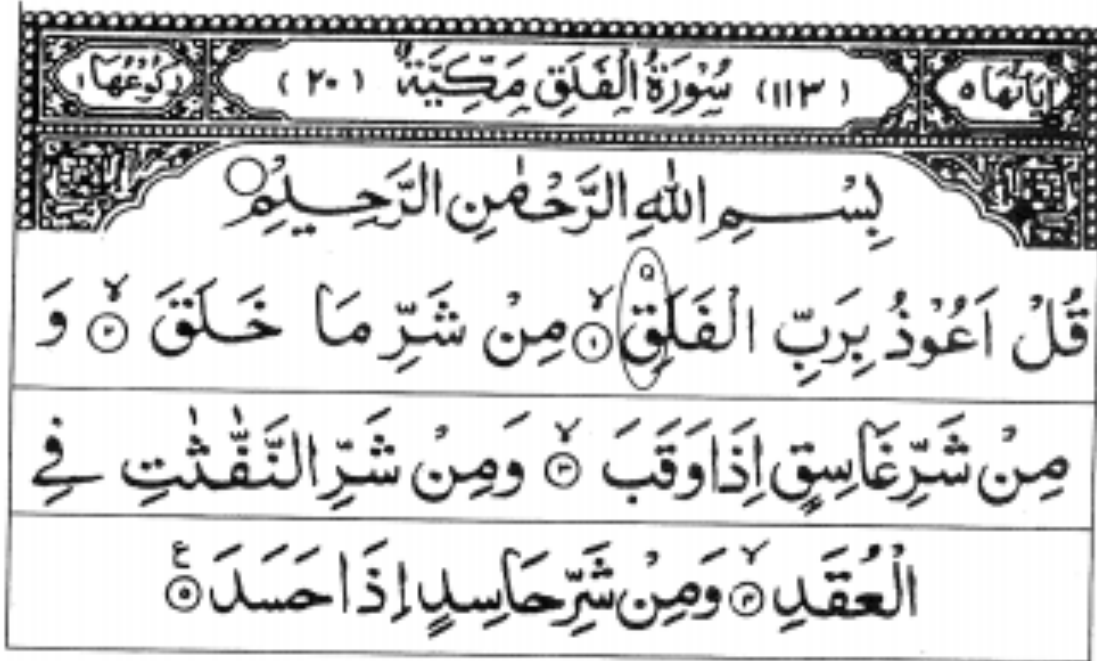 اٰيَاتُهَا ٥ (١١٣) سُوْرَةُ الْفَلَقِ مَكِّيَّةٌ (٢٠) رُكُوْعُهَا ١
بِسْمِ اللهِ الرَّحْمٰنِ الرَّحِيْمِ
Q
قُلْ اَعُوْذُ بِرَبِّ الْفَلَقِ ۙ﴿١﴾ مِنْ شَرِّ مَا خَلَقَ ۙ﴿٢﴾ وَ
مِنْ شَرِّ غَاسِقٍ اِذَا وَقَبَ ۙ﴿٣﴾ وَمِنْ شَرِّ النَّفّٰثٰتِ فِي
الْعُقَدِ ۙ﴿٤﴾ وَمِنْ شَرِّ حَاسِدٍ اِذَا حَسَدَ ﴿٥﴾ ع